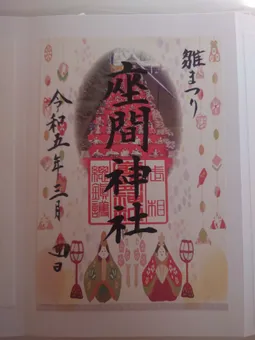 雛まつり
座間神社
令和五年三月四日